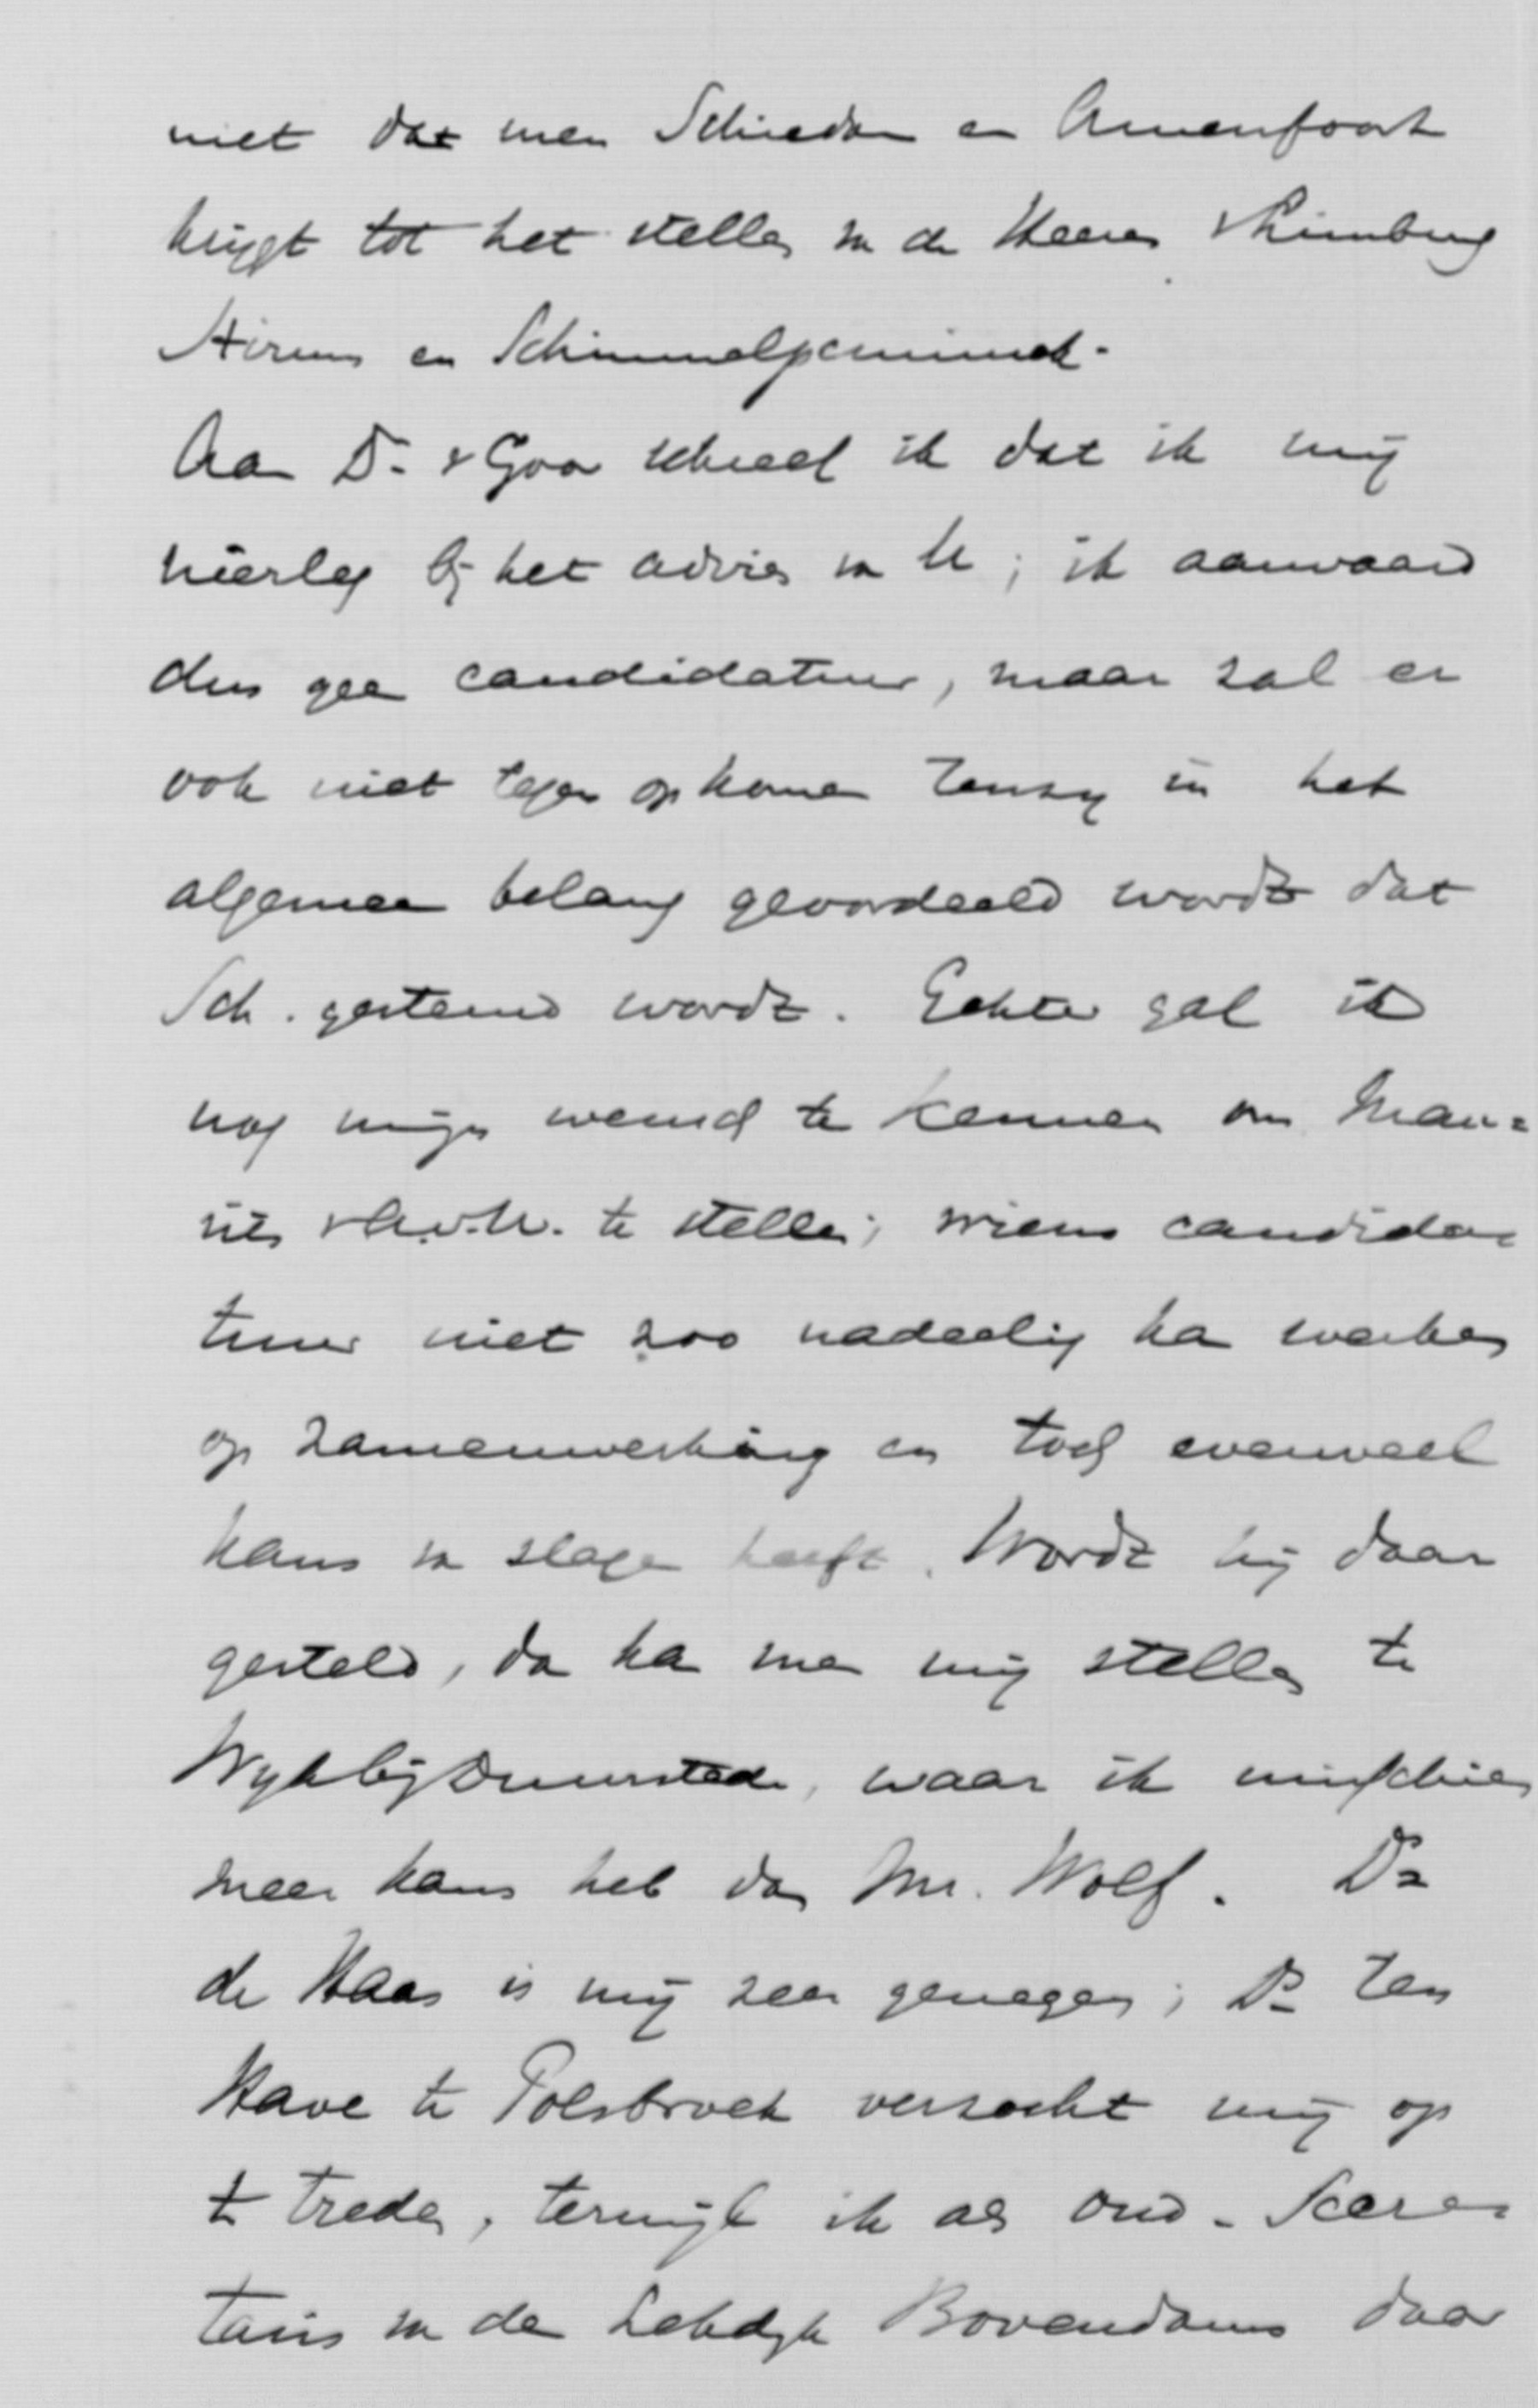 niet dat men Schiedam en Amersfoort
krijgt tot het stellen van de Heeren v Limburg
Stirum en Schimmelpenninck.
Aan Dr. v Goor schreef ik dat ik mij
nêerleg bij het advies van U; ik aanvaard
dus geen candidatuur, maar zal er
ook niet tegen opkomen tenzy in het
algemeen belang geoordeeld wordt dat
Sch. gesteund wordt. Echter gaf ik
nog mijn wensch te kennen om Mau=
rits v A.v.U. te stellen; wiens candida=
tuur niet zoo nadeelig kan werken
op zamenwerking en toch evenveel
kans van slagen heeft. Wordt hij daar
gesteld, dan kan men mij stellen te
WykbijDuurstede, waar ik misschien
meer kans heb dan Mr. Wolf. Ds
de Haas is mij zeer genegen; Ds ten
Kave te Polsbroek verzocht mij op
te treden, terwijl ik als oud-Secre=
taris van de Lekdyk Bovendams daar